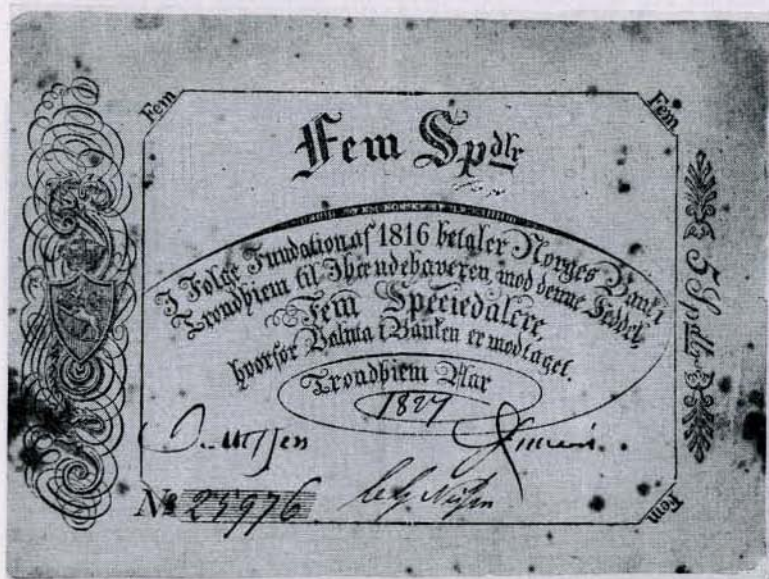 Fem
Fem
Fem Spdlr
I Følge Fundation af 1816 betaler Norges Bank i
Trondhiem til Ihændehaveren mod denne Seddel,
Fem Speciedalere,
hvorfor Valuta i Banken er modtaget.
Trondhiem Aar
1827
5 Spdlr
No 25976
Fem